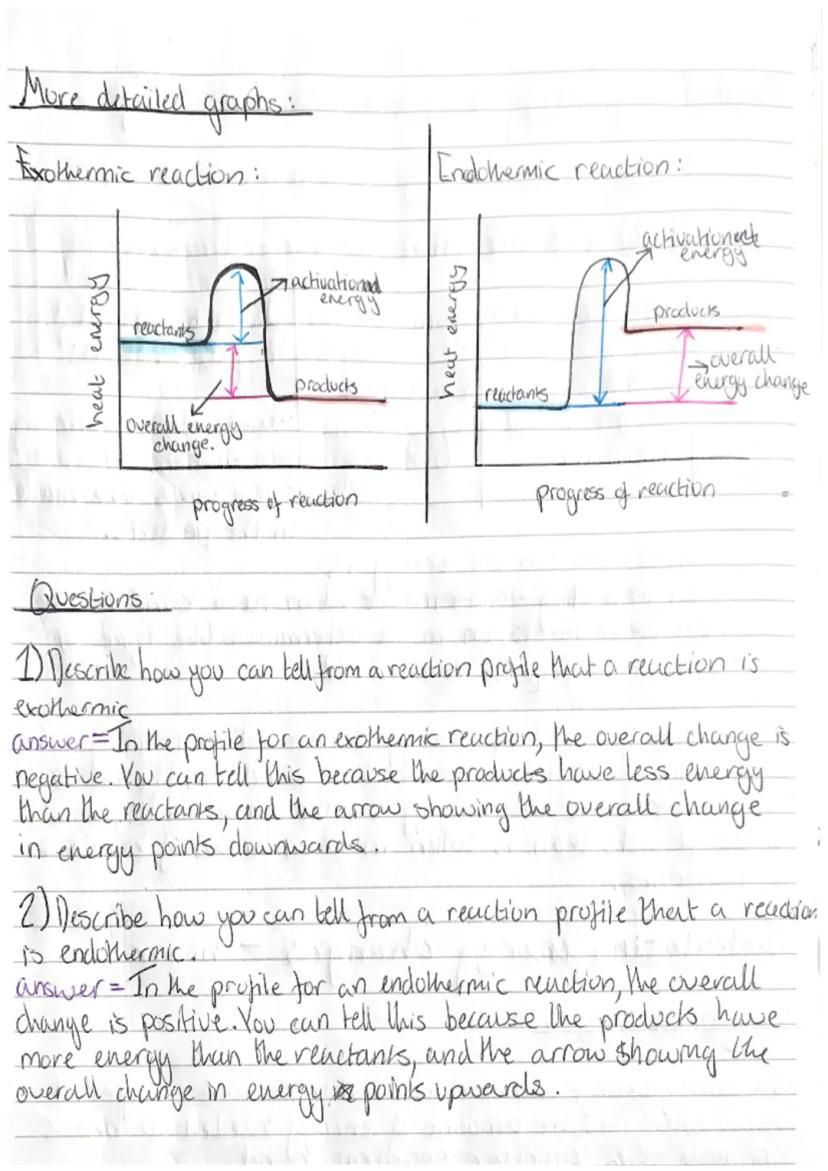 More detailed graphs:
Exothermic reaction:
heat energy
reactants
activation
energy
products
overall energy
change.
progress of reaction
Endothermic reaction:
heat energy
activation
energy
products
reactants
overall
energy change
progress of reaction
Questions:
1) Describe how you can tell from a reaction profile that a reaction is
exothermic
answer = In the profile for an exothermic reaction, the overall change is
negative. You can tell this because the products have less energy
than the reactants, and the arrow showing the overall change
in energy points downwards.
2) Describe how you can tell from a reaction profile that a reaction
is endothermic.
answer = In the profile for an endothermic reaction, the overall
change is positive. You can tell this because the products have
more energy than the reactants, and the arrow showing the
overall change in energy points upwards.